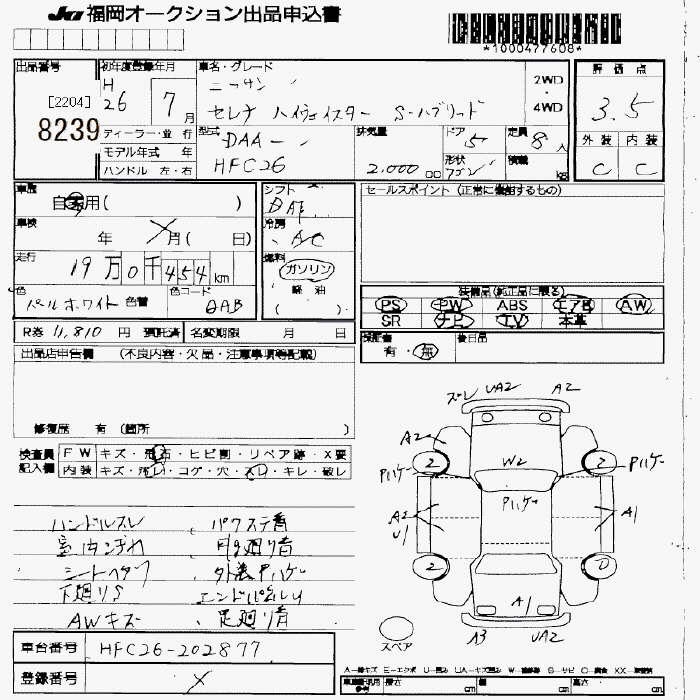 JU 福岡オークション出品申込書
*1000477608*
出品番号 [2204] 8239
初年度登録年月 H 26 7月
車名・グレード ニッサン
セレナ ハイウェイスター S-ハブリッド
2WD・4WD
評価点 3.5
外装 内装
C C
ディーラー・並行
モデル年式 年
ハンドル 左・右
型式 DAA-
HFC26
排気量 2.000 cc
ドア 5
形状 ワゴン
定員 8人
積載 kg
車歴 自家用( )
シフト
セールスポイント (正常に機能するもの)
車検 年 月( 日)
冷房 AC
走行 19万0千454km
燃料 ガソリン
軽油
( )
色 パールホワイト 色替
色コード QAB
装備品(純正品に限る)
PS PW ABS エアB AW
SR ナビ TV 本革
R券 11,810 円 預託済 名変期限 月 日
保証書 有・無
後日品
出品店申告欄 (不良内容・欠品・注意事項等記載)
修復歴 有 (箇所 )
検査員記入欄
FW キズ・飛石・ヒビ割・リペア跡・X要
内装 キズ・汚レ・コゲ・穴・スレ・キレ・破レ
ハンドルスレ パワステ音
シートヘタリ
下廻りS
AWキズ 足廻り音
ズレ UA2 A2
A2
2 2
Pハゲ W2 Pハゲ
Pハゲ
A2
U1
A1
2
A1
A3 UA2
スペア
車台番号 HFC26-202877
登録番号 X
A-線キズ E-エクボ U-凹み UA-キズ凹み
長さ cm 幅さ cm 高さ cm